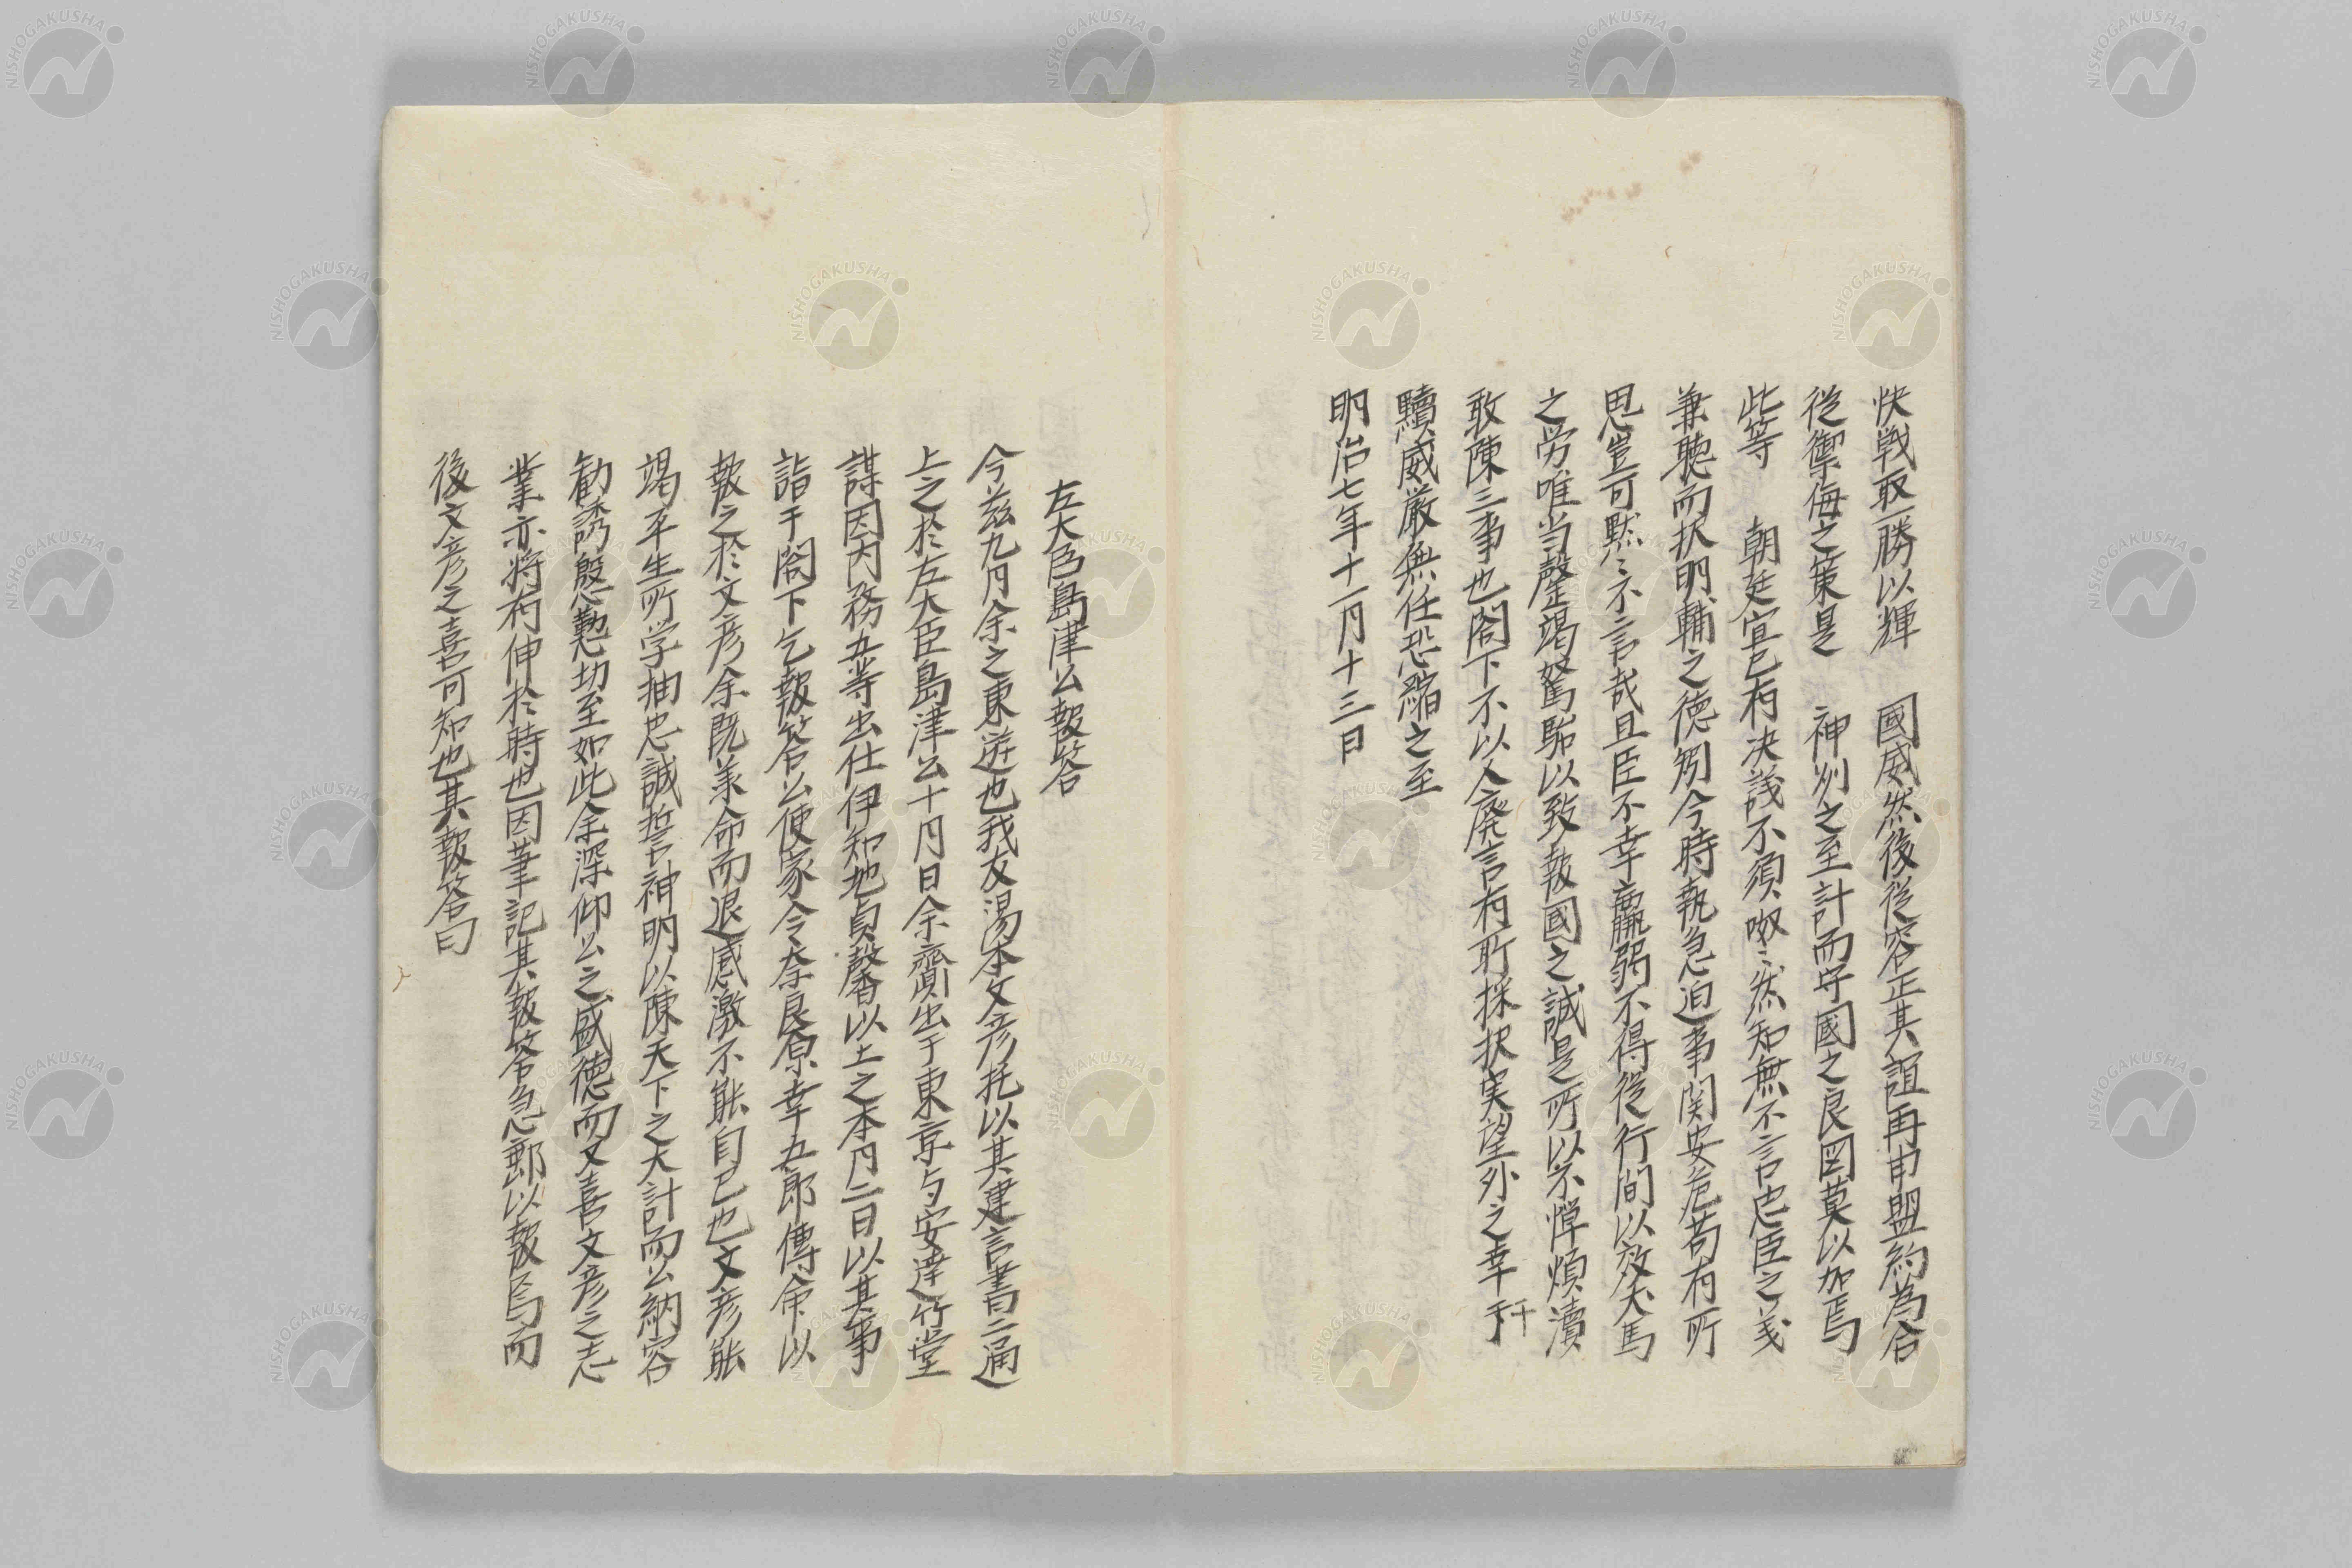 快戦取一勝以輝　國威然後従容正其誼再申盟約為合
従禦侮之策是　神州之至計而守國之良図莫以加焉
此等　朝廷宜已有决議不須呶〻然知無不言忠臣之義
兼聴而択明輔之徳矧今時執急迫事関安危苟有所
思豈可黙〻不言哉且臣不幸羸弱不得従行間以效犬馬
之労唯当罄竭駑駘以致報國之誠是所以不憚煩瀆
敢陳三事也閣下不以人廃言有所採択実望外之幸干
黷威厳無任恐縮之至
明治七年十一月十三日
左大臣島津公報答
今茲九月余之東遊也我友湯本文彦托以其建言書二通
上之於左大臣島津公十月日余齎出于東京与安達竹堂
謀因内務五等出仕伊知地貞馨以上之本月二日以其事
詣于閣下乞報答公使家令奈良原幸五郎傳命以
報之於文彦余既羕命而退感激不能自已也文彦能
竭平生所学抽忠誠誓神明以陳天下之大計而公納容
勧誘慇懃切至如此余深仰公之盛徳而又喜文彦之志
業亦将有伸於時也因筆記其報答急郵以報焉而
後文彦之喜可知也其報答曰
NISHOGAKUSHA